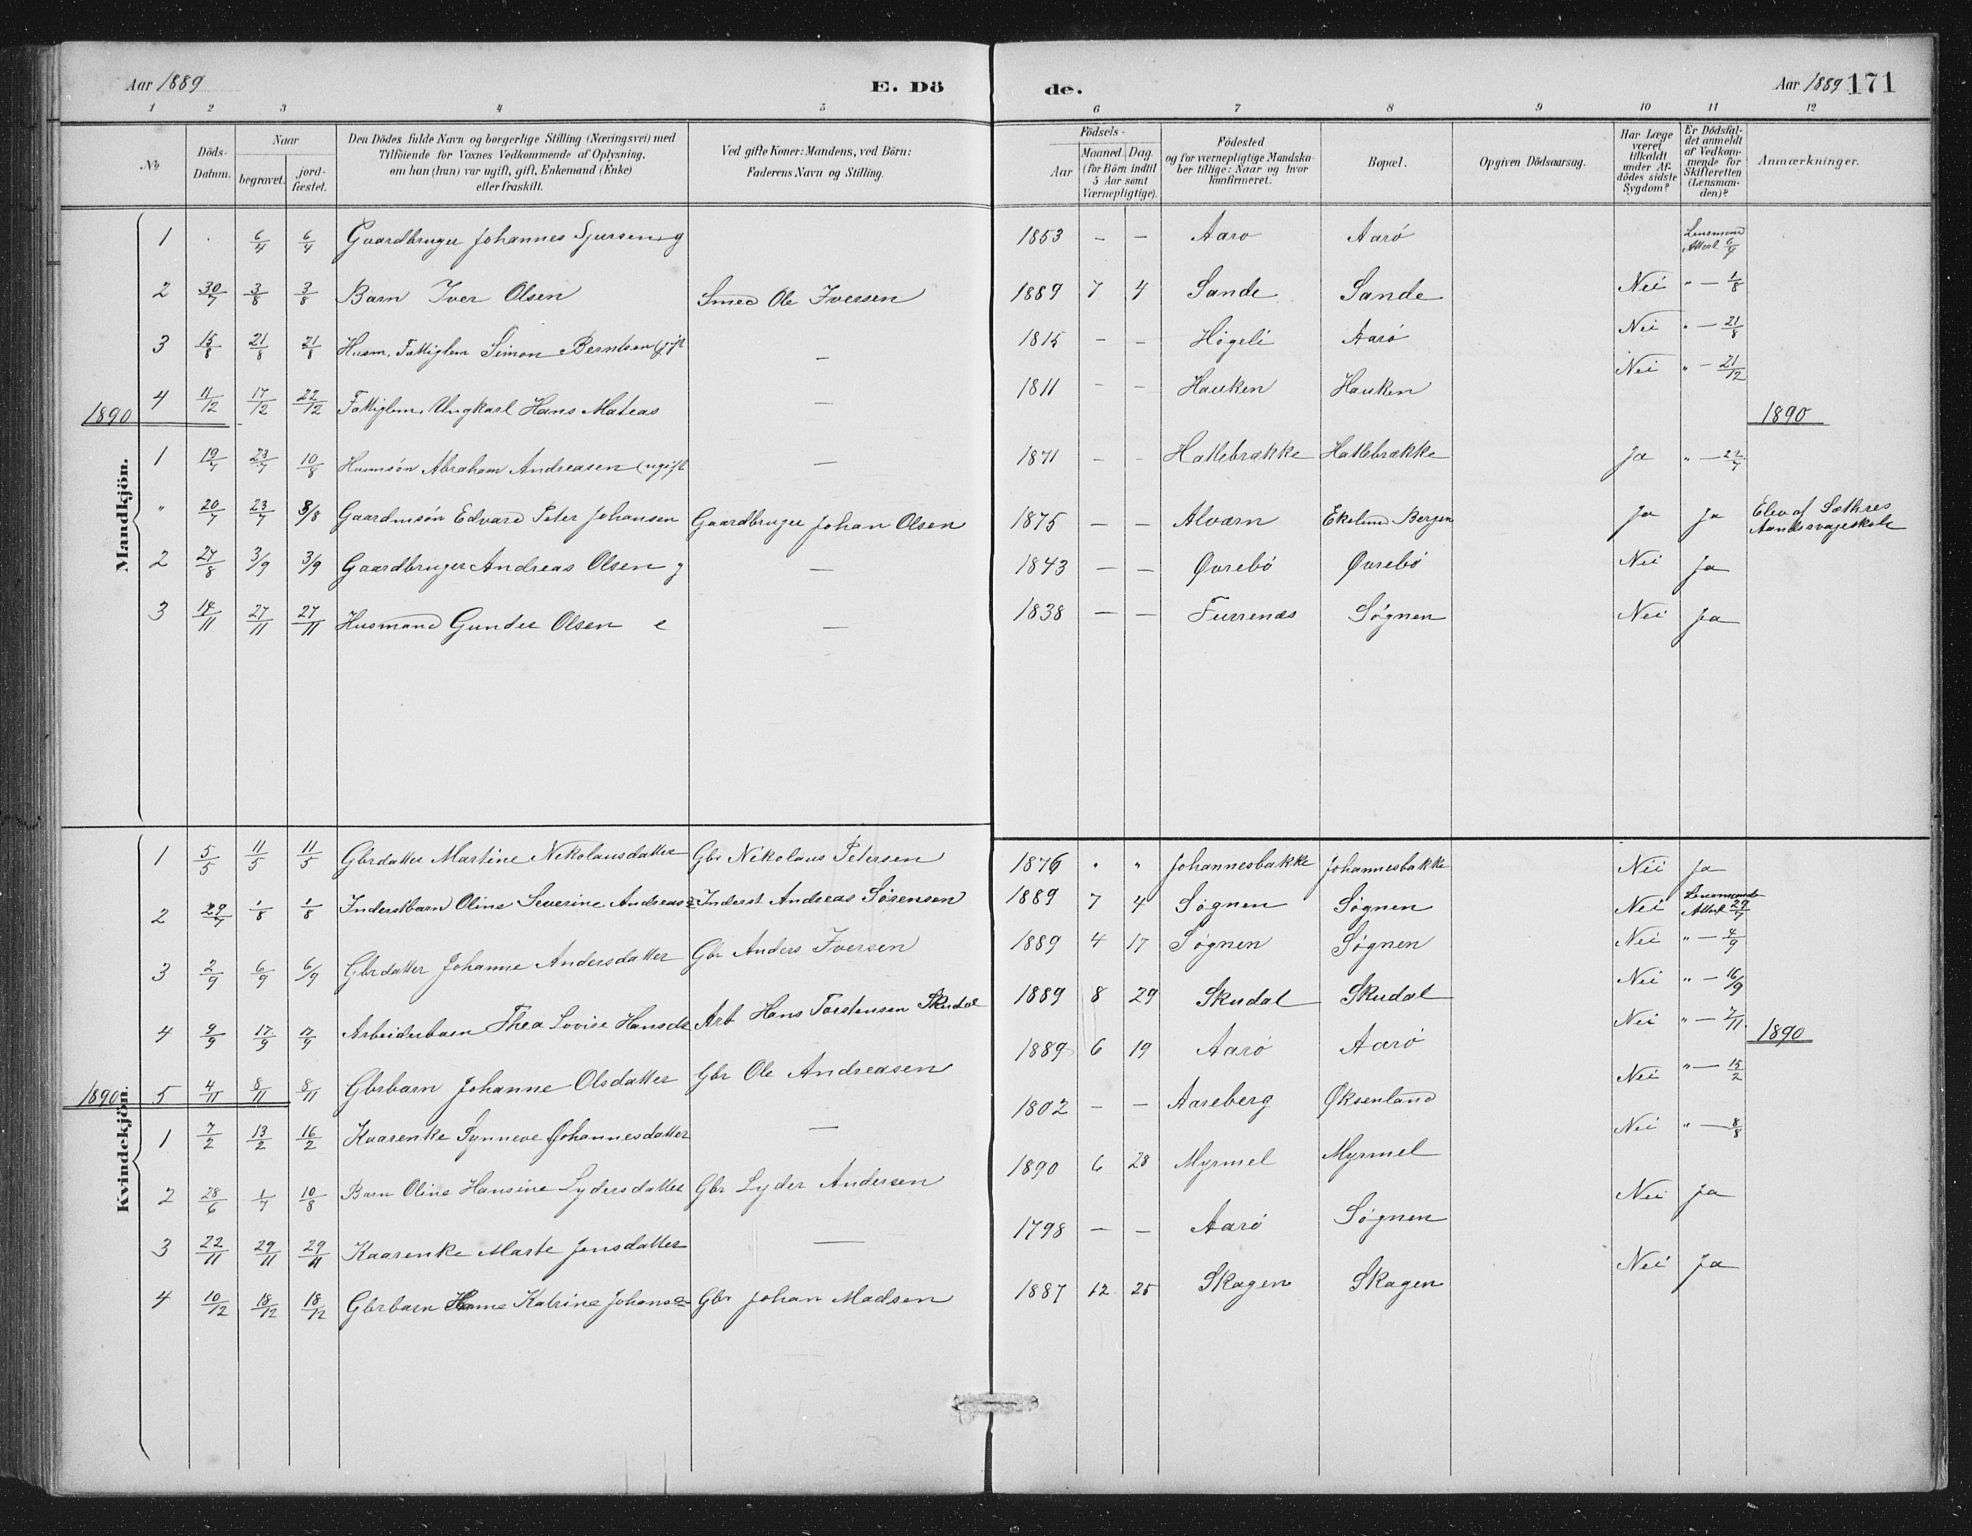 Aar 1889
E. Dö
de.
Aar 1889 171
1 2 3 4 5 6 7 8 9 10 11 12
No
Döds-Datum.
Naar
begravet.
jord-fæstet.
Den Dödes fulde Navn og borgerlige Stilling (Næringsvei) med
Tilföiende for Voxnes Vedkommende af Oplysning,
om han (hun) var ugift, gift, Enkemand (Enke)
eller fraskilt.
Ved gifte Koner: Mandens, ved Börn:
Faderens Navn og Stilling.
Födsels-
Aar
Maaned. Dag.
(for Börn indtil
5 Aar samt
Værnepligtige).
Födested
og for værnepligtige Mandska-
ber tillige: Naar og hvor
konfirmeret.
Bopæl.
Opgiven Dödsaarsag.
Har Læge
været
tilkaldt
under Af-
dödes sidste
Sygdom?
Er Dödsfal-
det anmeldt
af Vedkom-
mende for
Skifteretten
(Lensman-
den)?
Anmærkninger.
Mandkjön.
1 . 6/4 6/4 Gaardbruger Johannes Sjursen g 1853 – – Aarø Aarø Lensmand Attest 6/4
2 30/7 3/8 3/8 Barn Iver Olsen Smed Ole Iversen 1889 7 4 Sande Sande Nei " – 1/8
3 15/8 21/8 21/8 Husm. Fattiglem Simon Berntsen gift – 1815 – – Høgeli Aarø Nei " – 21/8
4 11/12 17/12 22/12 Fattiglem Ungkarl Hans Mateas – 1811 – – Hauken Hauken Nei " – 21/12
1890 1890
1 19/7 23/7 10/8 Husmsøn Abraham Andreasen (ugift – 1871 – – Hatlebrække Hatlebrække Ja " – 22/7
" 20/7 23/7 3/8 Gaardmsøn Edvard Peter Johansen Gaardbruger Johan Olsen 1875 – – Alværn Ekelund Bergen Ja Ja Elev af Sæthres Aandssvageskole
2 27/8 3/9 3/9 Gaardbruger Andreas Olsen g – 1843 – – Øvrebø Øvrebø Nei Ja
3 14/11 27/11 27/11 Husmand Gunder Olsen e – 1838 – – Furrenæs Søgnen Nei Ja
Kvindekjön.
1 5/5 11/5 11/5 Gbrdatter Martine Nikolausdatter Gbr Nikolaus Petersen 1876 " " Johannesbakke Johannesbakke Nei Ja
2 29/7 1/8 1/8 Inderstbarn Oline Severine Andreas= Inderst Andreas Sørensen 1889 7 4 Søgnen Søgnen Nei Lensmands Attest 29/7
3 2/9 6/9 6/9 Gbrdatter Johanne Andersdatter Gbr Anders Iversen 1889 4 17 Søgnen Søgnen Nei " – 4/9
4 9/9 17/9 17/9 Arbeiderbarn Thea Lovise Hansdt Arb Hans Torstensen Skudal 1889 8 29 Skudal Skudal Nei " – 16/9
5 4/11 8/11 8/11 Gbrbarn Johanne Olsdatter Gbr Ole Andreasen 1889 6 19 Aarø Aarø Nei " – 7/11
1890 1890
1 7/2 13/2 16/2 Kaarenke Synneve Johannesdatter – 1802 – – Aareberg Øksenland Nei " – 15/2
2 28/6 1/7 10/8 Barn Oline Hansine Lydersdatter Gbr Lyder Andersen 1890 6 28 Myrmel Myrmel Nei " – 8/8
3 22/11 29/11 29/11 Kaarenke Marte Jensdatter – 1798 – – Aarø Søgnen Nei Ja
4 10/12 18/12 18/12 Gbrbarn Hanne Katrine Johans= Gbr Johan Madsen 1887 12 25 Skagen Skagen Nei Ja